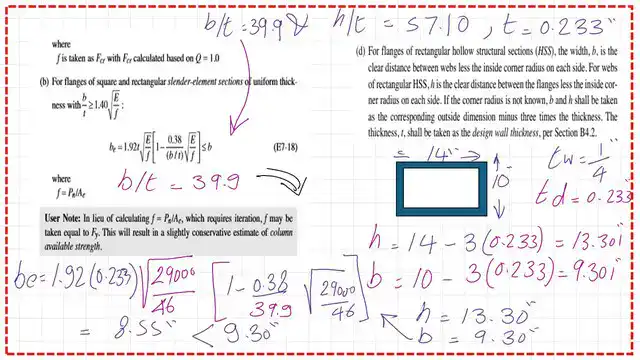 b/t = 39.9 & h/t = 57.10, t = 0.233"
where
f is taken as Fcr with Fcr calculated based on Q = 1.0
(b) For flanges of square and rectangular slender-element sections of uniform thick-
ness with b/t ≥ 1.40 √(E/f) :
be = 1.92t √(E/f) [1 − 0.38/(b/t) √(E/f)] ≤ b (E7-18)
where
f = Pn/Ae
b/t = 39.9
User Note: In lieu of calculating f = Pn/Ae, which requires iteration, f may be
taken equal to Fy. This will result in a slightly conservative estimate of column
available strength.
(d) For flanges of rectangular hollow structural sections (HSS), the width, b, is the
clear distance between webs less the inside corner radius on each side. For webs
of rectangular HSS, h is the clear distance between the flanges less the inside cor-
ner radius on each side. If the corner radius is not known, b and h shall be taken
as the corresponding outside dimension minus three times the thickness. The
thickness, t, shall be taken as the design wall thickness, per Section B4.2.
14"
10"
tw = 1/4"
td = 0.233"
h = 14 - 3(0.233) = 13.301"
b = 10 - 3(0.233) = 9.301"
be = 1.92(0.233) √(29000/46) [1 - 0.38/39.9 √(29000/46)]
= 8.55" < 9.30"
h = 13.30"
b = 9.30"